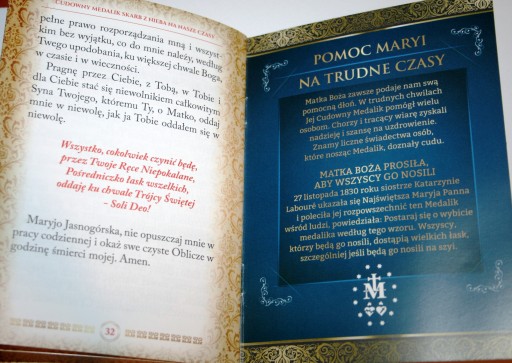 CUDOWNY MEDALIK SKARB Z NIEBA NA NASZE CZASY
pełne prawo rozporządzania mną i wszyst-
kim bez wyjątku, co do mnie należy, według
Twego upodobania, ku większej chwale Boga,
w czasie i w wieczności.
Pragnę przez Ciebie, z Tobą, w Tobie i
dla Ciebie stać się niewolnikiem całkowitym
Syna Twojego, któremu Ty, o Matko, oddaj
mnie w niewolę, jak ja Tobie oddałem się w
niewolę.
Wszystko, cokolwiek czynić będę,
przez Twoje Ręce Niepokalane,
Pośredniczko łask wszelkich,
oddaję ku chwale Trójcy Świętej
- Soli Deo!
Maryjo Jasnogórska, nie opuszczaj mnie w
pracy codziennej i okaż swe czyste Oblicze w
godzinę śmierci mojej. Amen.
32
POMOC MARYI
NA TRUDNE CZASY
Matka Boża zawsze podaje nam swą
pomocną dłoń. W trudnych chwilach
Jej Cudowny Medalik pomógł wielu
osobom. Chorzy i tracący wiarę zyskali
nadzieję i szansę na uzdrowienie.
Znamy liczne świadectwa osób,
które nosząc Medalik, doznały cudu.
MATKA BOŻA PROSIŁA,
ABY WSZYSCY GO NOSILI
27 listopada 1830 roku siostrze Katarzynie
Labouré ukazała się Najświętsza Maryja Panna
i poleciła jej rozpowszechnić ten Medalik
wśród ludzi, powiedziała: Postaraj się o wybicie
medalika według tego wzoru. Wszyscy,
którzy będą go nosili, dostąpią wielkich łask,
szczególniej jeśli będą go nosili na szyi.